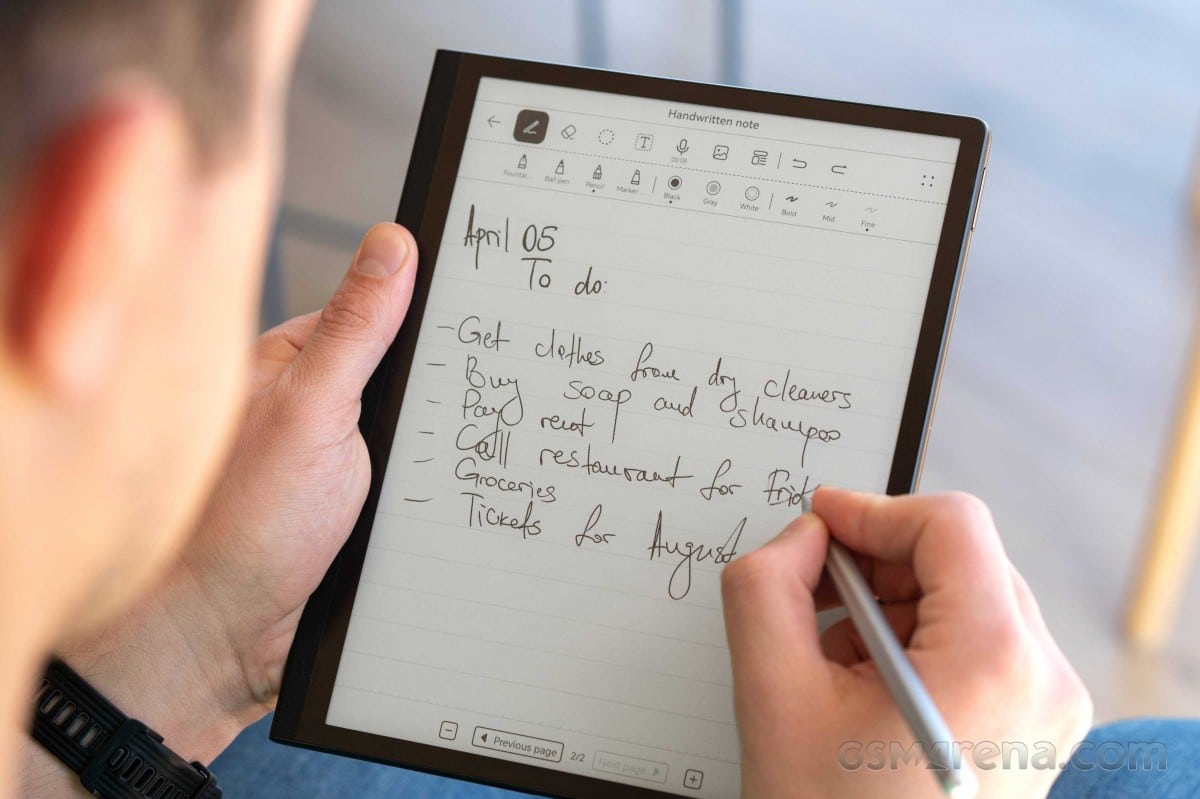 Handwritten note
T
00:06
Fountai... Ball pen Pencil Marker... Black Gray White Bold Mid Fine
April 05
To do:
- Get clothes from dry cleaners
- Buy soap and shampoo
- Pay rent
- Call restaurant for
- Groceries
- Tickets for August
Previous page 2/2 Next page
GSMArena.com